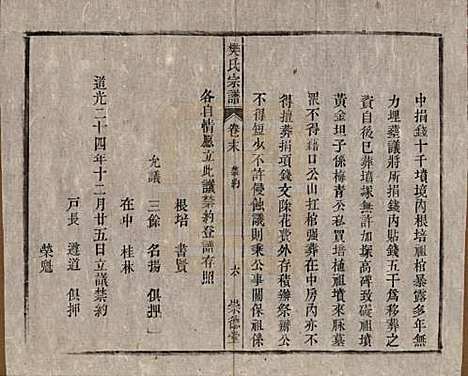 中捐錢十千墳境內根培祖棺暴露多年無
力埋塟議將所捐錢內貼錢五千爲移葬之
資自後已葬墳塚無許加探高碑致碍祖墳
黃金坦子係梅青公私買塔植祖墳來脉墓
眾不得藉口公山扛棺强葬在中房內亦不
得擅葬捐項錢文除花費外存積辦祭辦公
不得短少不許侵蝕議則秉公事關保祖係
各自情愿立此議禁約登譜存照
根培 書賢
允議 三餘 名揚 俱押
在中 桂林
道光二十四年十二月廿五日立議禁約
戶長 遵道 俱押
榮魁
樊氏宗譜 卷末 禁約 六 崇德堂